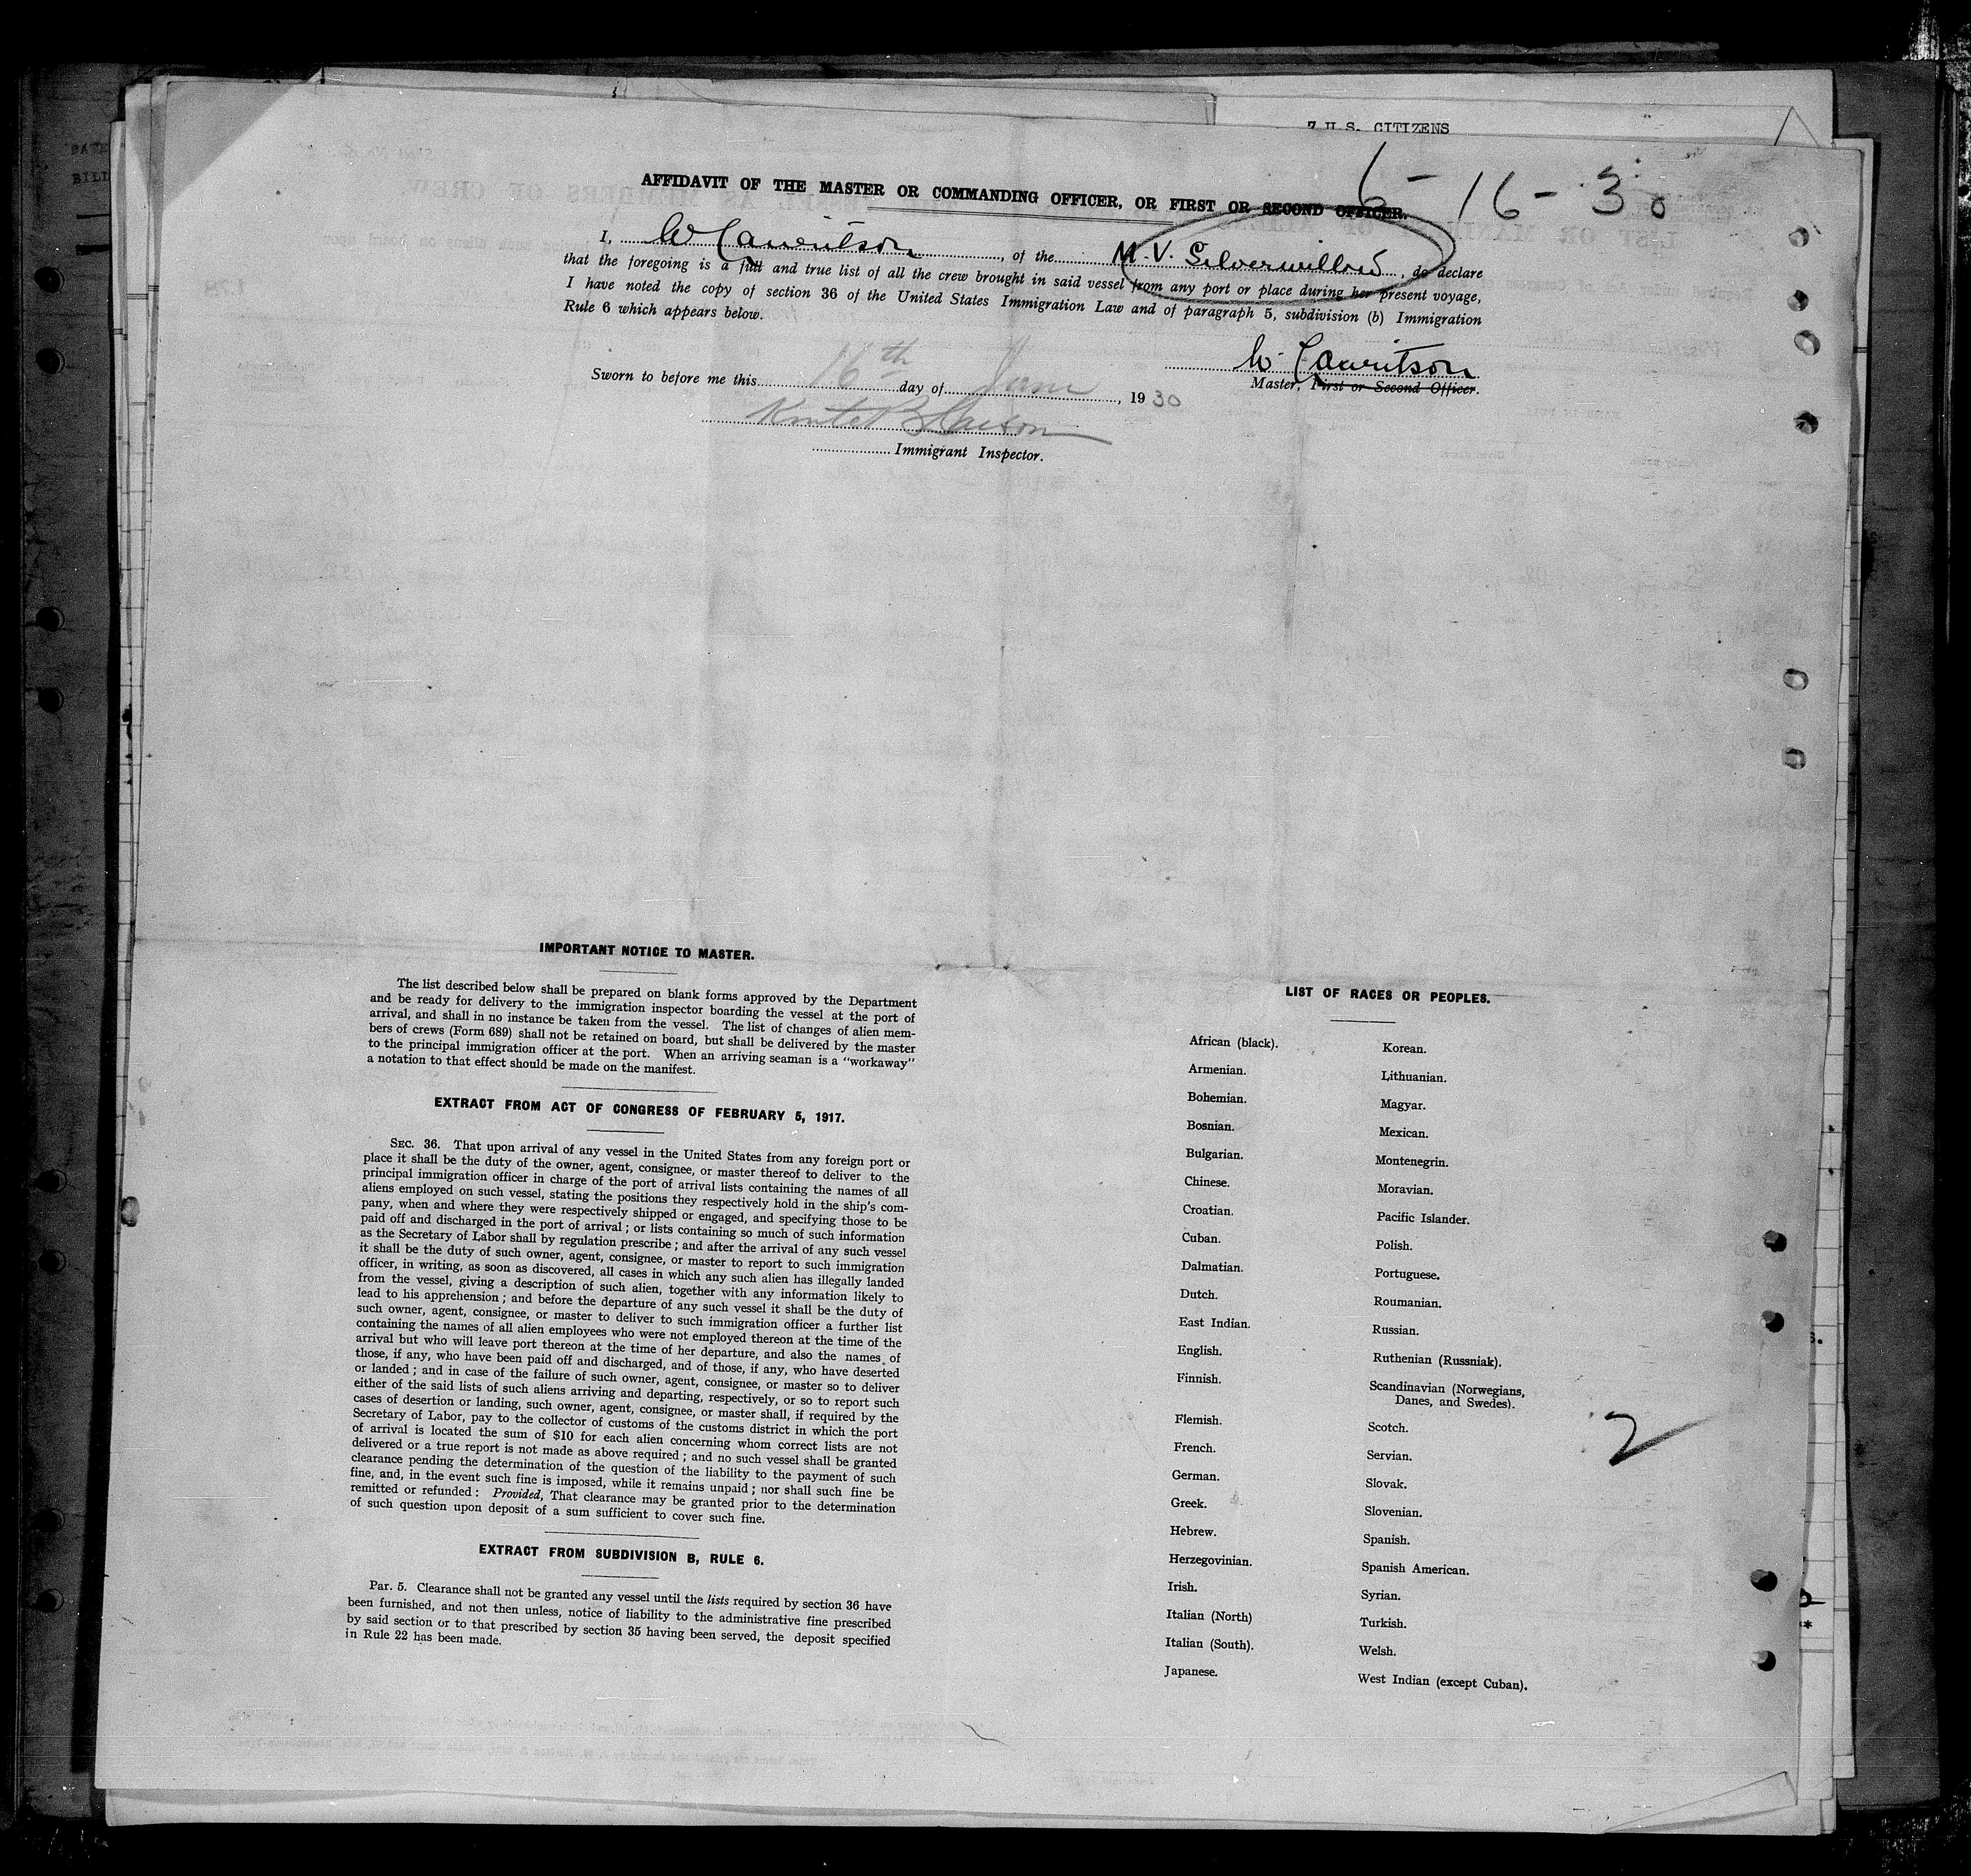 7 U.S. CITIZENS
6-16-30
AFFIDAVIT OF THE MASTER OR COMMANDING OFFICER, OR FIRST OR SECOND OFFICER.
I, W Lauritson, of the M.V. Silverwillow, do declare
that the foregoing is a full and true list of all the crew brought in said vessel from any port or place during her present voyage,
I have noted the copy of section 36 of the United States Immigration Law and of paragraph 5, subdivision (b) Immigration
Rule 6 which appears below.
W Lauritson
Master, First or Second Officer.
Sworn to before me this 16th day of June, 1930
Immigrant Inspector.
IMPORTANT NOTICE TO MASTER.
The list described below shall be prepared on blank forms approved by the Department
and be ready for delivery to the immigration inspector boarding the vessel at the port of
arrival, and shall in no instance be taken from the vessel. The list of changes of alien mem-
bers of crews (Form 689) shall not be retained on board, but shall be delivered by the master
to the principal immigration officer at the port. When an arriving seaman is a "workaway"
a notation to that effect should be made on the manifest.
EXTRACT FROM ACT OF CONGRESS OF FEBRUARY 5, 1917.
SEC. 36. That upon arrival of any vessel in the United States from any foreign port or
place it shall be the duty of the owner, agent, consignee, or master thereof to deliver to the
principal immigration officer in charge of the port of arrival lists containing the names of all
aliens employed on such vessel, stating the positions they respectively hold in the ship's com-
pany, when and where they were respectively shipped or engaged, and specifying those to be
paid off and discharged in the port of arrival; or lists containing so much of such information
as the Secretary of Labor shall by regulation prescribe; and after the arrival of any such vessel
it shall be the duty of such owner, agent, consignee, or master to report to such immigration
officer, in writing, as soon as discovered, all cases in which any such alien has illegally landed
from the vessel, giving a description of such alien, together with any information likely to
lead to his apprehension; and before the departure of any such vessel it shall be the duty of
such owner, agent, consignee, or master to deliver to such immigration officer a further list
containing the names of all alien employees who were not employed thereon at the time of the
arrival but who will leave port thereon at the time of her departure, and also the names of
those, if any, who have been paid off and discharged, and of those, if any, who have deserted
or landed; and in case of the failure of such owner, agent, consignee, or master so to deliver
either of the said lists of such aliens arriving and departing, respectively, or so to report such
cases of desertion or landing, such owner, agent, consignee, or master shall, if required by the
Secretary of Labor, pay to the collector of customs of the customs district in which the port
of arrival is located the sum of $10 for each alien concerning whom correct lists are not
delivered or a true report is not made as above required; and no such vessel shall be granted
clearance pending the determination of the question of the liability to the payment of such
fine, and, in the event such fine is imposed, while it remains unpaid; nor shall such fine be
remitted or refunded: Provided, That clearance may be granted prior to the determination
of such question upon deposit of a sum sufficient to cover such fine.
EXTRACT FROM SUBDIVISION B, RULE 6.
Par. 5. Clearance shall not be granted any vessel until the lists required by section 36 have
been furnished, and not then unless, notice of liability to the administrative fine prescribed
by said section or to that prescribed by section 35 having been served, the deposit specified
in Rule 22 has been made.
LIST OF RACES OR PEOPLES.
African (black).
Armenian.
Bohemian.
Bosnian.
Bulgarian.
Chinese.
Croatian.
Cuban.
Dalmatian.
Dutch.
East Indian.
English.
Finnish.
Flemish.
French.
German.
Greek.
Hebrew.
Herzegovinian.
Irish.
Italian (North)
Italian (South).
Japanese.
Korean.
Lithuanian.
Magyar.
Mexican.
Montenegrin.
Moravian.
Pacific Islander.
Polish.
Portuguese.
Roumanian.
Russian.
Ruthenian (Russniak).
Scandinavian (Norwegians,
Danes, and Swedes).
Scotch.
Servian.
Slovak.
Slovenian.
Spanish.
Spanish American.
Syrian.
Turkish.
Welsh.
West Indian (except Cuban).
2